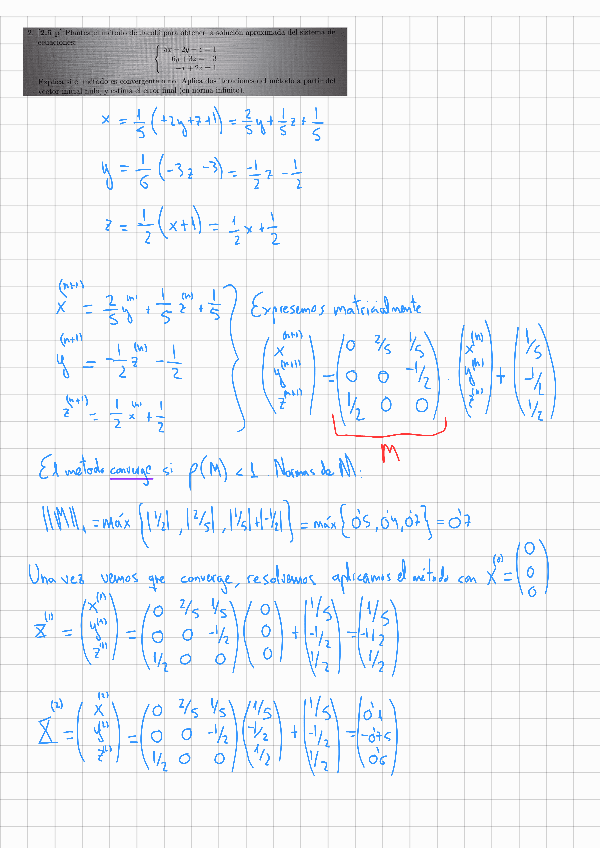 2. [2.5 p] Plantea el método de Jacobi para obtener la solución aproximada del sistema de
ecuaciones:
5x − 2y − z = 1
6y + 3z = −3
−x + 2z = 1
Explica si el método es convergente o no. Aplica dos iteraciones del método a partir del
vector inicial nulo y estima el error final (en norma infinito).
x = 1/5 (+2y+z+1) = 2/5 y + 1/5 z + 1/5
y = 1/6 (-3z -3) = -1/2 z - 1/2
z = 1/2 (x+1) = 1/2 x + 1/2
x^(n+1) = 2/5 y^(n) + 1/5 z^(n) + 1/5
y^(n+1) = -1/2 z^(n) - 1/2
z^(n+1) = 1/2 x^(n) + 1/2
Expresemos matricialmente
(x^(n+1) y^(n+1) z^(n+1)) = (0 2/5 1/5 0 0 -1/2 1/2 0 0) · (x^(n) y^(n) z^(n)) + (1/5 -1/2 1/2)
M
El método converge si ρ(M) < 1. Normas de M:
||M||₁ = máx {|1/2|, |2/5|, |1/5|+|-1/2|} = máx {0'5, 0'4, 0'7} = 0'7
Una vez vemos que converge, resolvemos aplicamos el método con X^(0) = (0 0 0)
X^(1) = (x^(1) y^(1) z^(1)) = (0 2/5 1/5 0 0 -1/2 1/2 0 0) (0 0 0) + (1/5 -1/2 1/2) = (1/5 -1/2 1/2)
X^(2) = (x^(2) y^(2) z^(2)) = (0 2/5 1/5 0 0 -1/2 1/2 0 0) (1/5 -1/2 1/2) + (1/5 -1/2 1/2) = (0'1 -0'75 0'6)